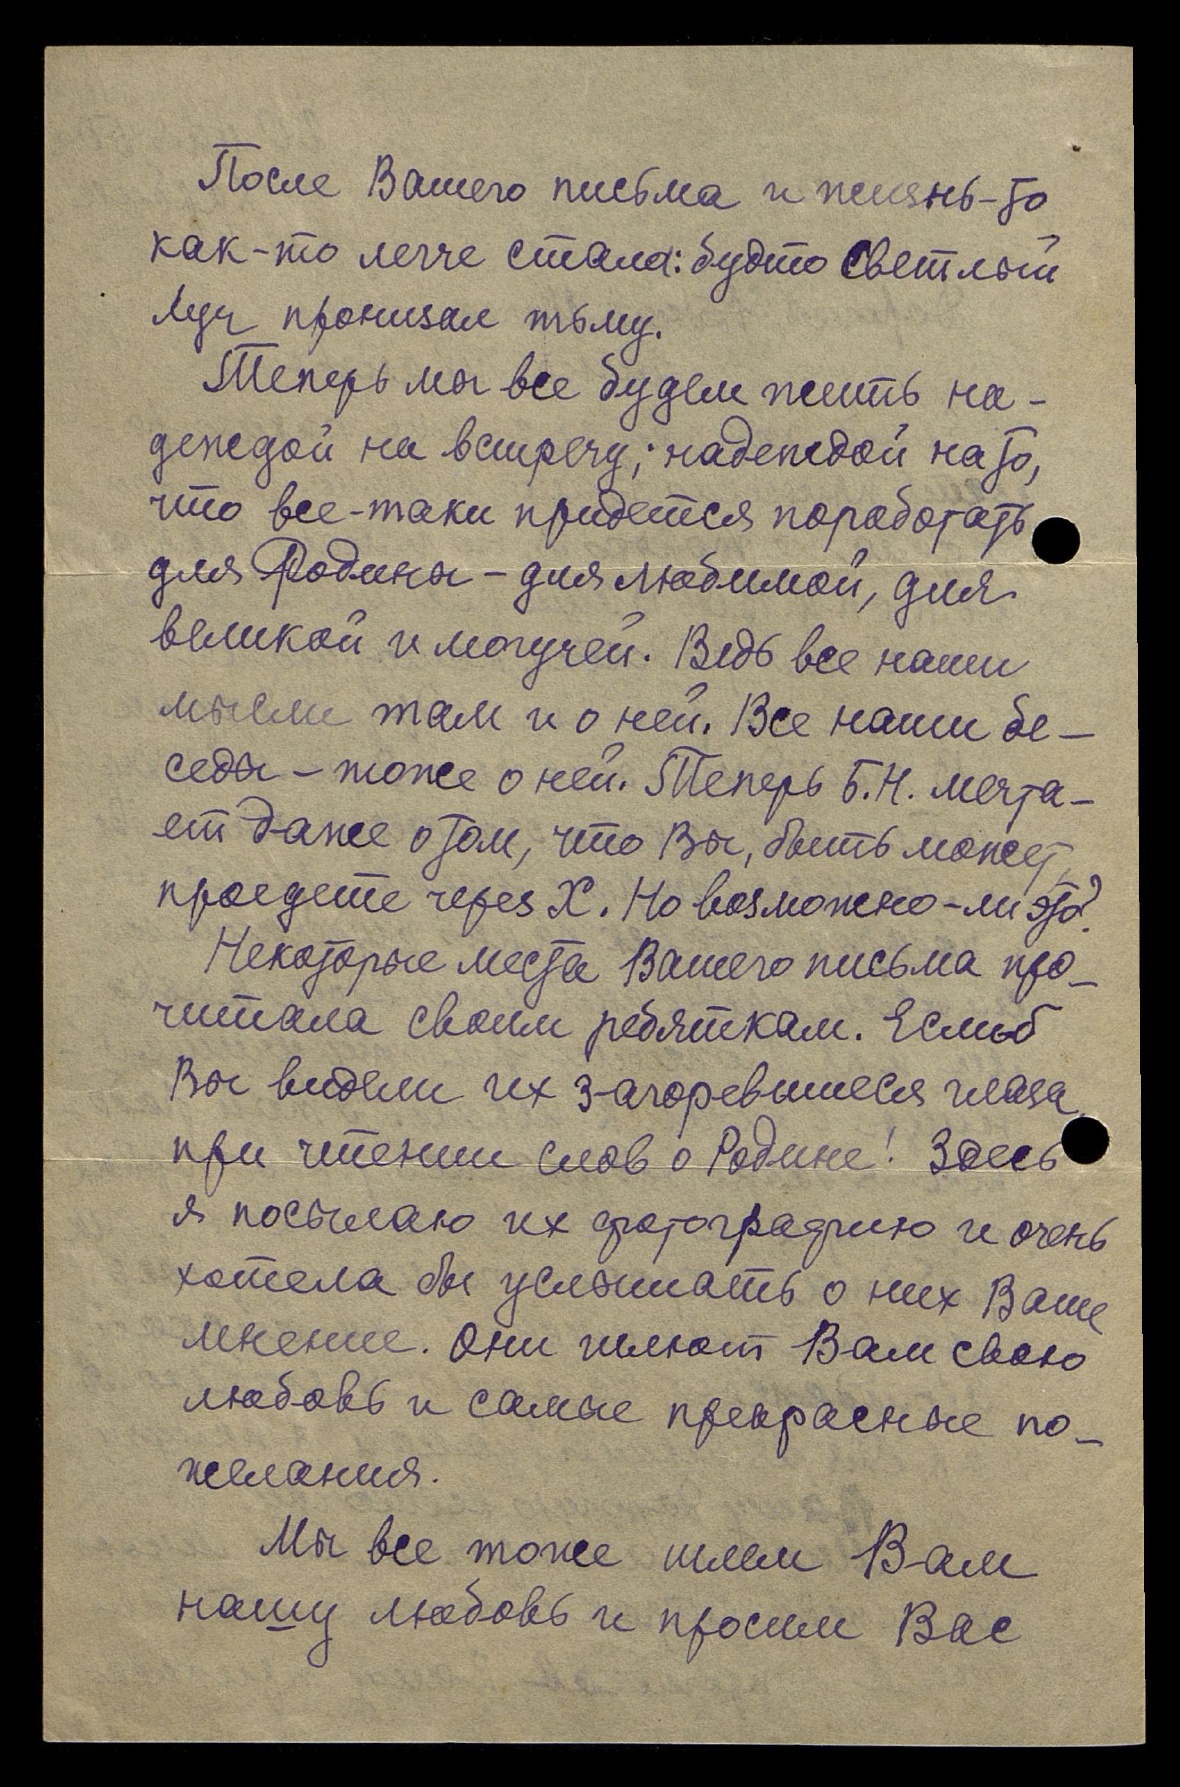 После Вашего письма и жизнь-то
как-то легче стала: будто светлый
луч пронизал тьму.
Теперь мы все будем жить на-
деждой на встречу; надеждой на то,
что все-таки придется поработать
для Родины – для любимой, для
великой и могучей. Ведь все наши
мысли там и о ней. Все наши бе-
седы – тоже о ней. Теперь Б.Н. мечта-
ет даже о том, что Вы, быть может,
проедете через Х. Но возможно-ли это?
Некоторые места Вашего письма про-
читала своим ребяткам. Если-б
Вы видели их загоревшиеся глаза
при чтении слов о Родине! Здесь
я посылаю их фотографию и очень
хотела бы услышать о них Ваше
мнение. Они шлют Вам свою
любовь и самые прекрасные по-
желания.
Мы все тоже шлем Вам
нашу любовь и просим Вас